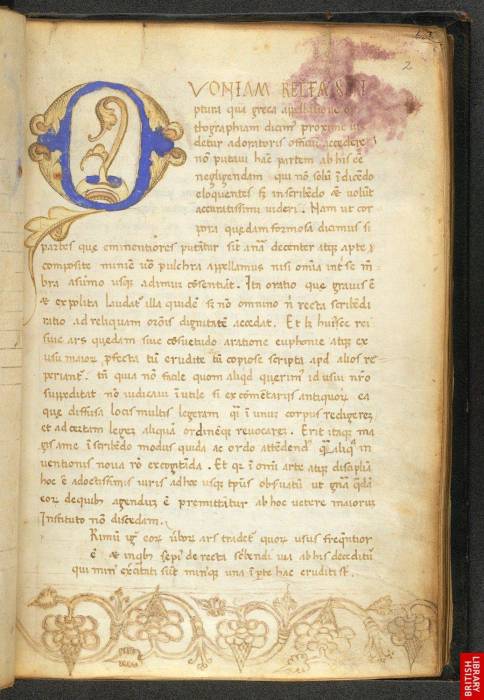 2
QVONIAM RECTA SCRI
ptura quā greca appellatione
thographiam dicim' proxime
detur adoratoris officiū accedere
nō putavi hāc partem ab his eē
negligendam qui nō solū ī dicēdo
eloquentes sȝ inscribēdo æ volūt
accuratissimi videri. Nam ut cor
pora quędam formosa dicimus si
partes quę eminentiores putātur sīt decenter atqȝ apte
composite minīe v̄o pulchra appellamus nisi om̄ia int' se m̄
bra asūmo usqȝ adimūʒ cōsentiāt. Ita oratio quę gravis ē
æ expolita laudat' illa quidē sȝ nō omnino ī recta scribēdi
ratio ad reliquam or̄ōis dignitatē accedat. Et huiſce rei
sive ars quędam sive cōsuetudo aratione euphonie atqȝ ex
usu maiorȝ pfecta tū erudite tū copiose scripta apd alios re
periant'. tn̄ quia nō facile quom aliqd querim' id usui nr̄o
suppeditat nō iudicavi īutile si ex cōmētarijs antiquorȝ ea
quę diffusa locis multis legeram q̄i ī unūʒ corpus redigereȝ
et ad certam legeȝ aliquā ordinēqȝ revocareȝ. Erit itaqȝ ma
gis ame ī scribēdo modus quidā ac ordo attēdend' q̄ aliqȝ in
ventionis nova rō excogitāda. Et qȝ ī om̄i arte atqȝ disciplīa
hoc ē adoctissimis viris adhoc usqȝ tp̄us obſvatū ut gn̄a q̄dā
eorȝ de quibȝ agenduȝ ē premittātur ab hoc vetere maiorȝ
Instituto nō discedam.
Rimū eorȝ v̄borȝ ars tradet' quorȝ usus freq̄ntior
ē æ inqbȝ sepi' de recta scbendi via ab his deceditȝ
qui excitati sūt una īpte hac eruditi st.
BRITISH
LIBRARY